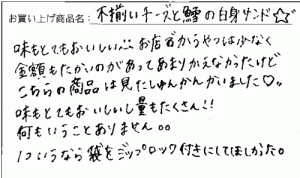 お買い上げ商品名: 不揃いチーズと鱈の白身サンド☆
味もとてもおいしい… お店でかうやつは少なく
金額もたかいのがあってあまりかえなかったけど
こちらの商品は見たしゅんかんかいました♡。
味もとてもおいしいし量もたくさん!!
何もいうことありません。。
1ついうなら袋をジップロック付きにしてほしかった。